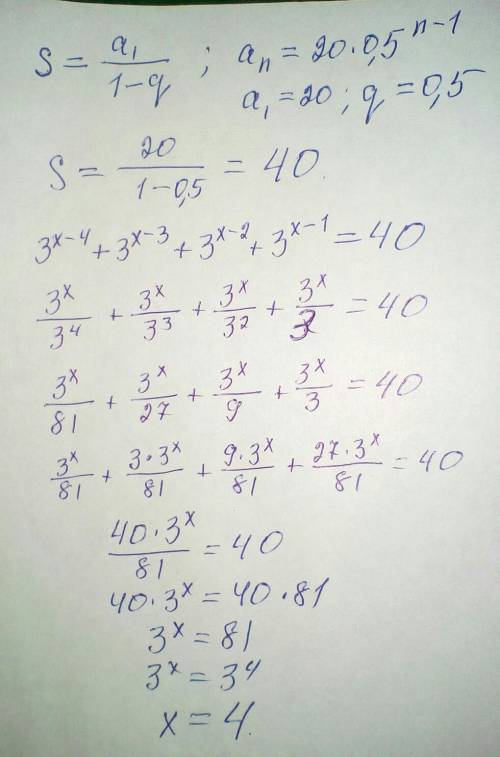 S = a₁/(1-q) ; aₙ = 20·0,5ⁿ⁻¹
a₁ = 20 ; q = 0,5
S = 20/(1-0,5) = 40.
3ˣ⁻⁴ + 3ˣ⁻³ + 3ˣ⁻² + 3ˣ⁻¹ = 40
3ˣ/3⁴ + 3ˣ/3³ + 3ˣ/3² + 3ˣ/3 = 40
3ˣ/81 + 3ˣ/27 + 3ˣ/9 + 3ˣ/3 = 40
3ˣ/81 + 3·3ˣ/81 + 9·3ˣ/81 + 27·3ˣ/81 = 40
40·3ˣ/81 = 40
40·3ˣ = 40·81
3ˣ = 81
3ˣ = 3⁴
x = 4.